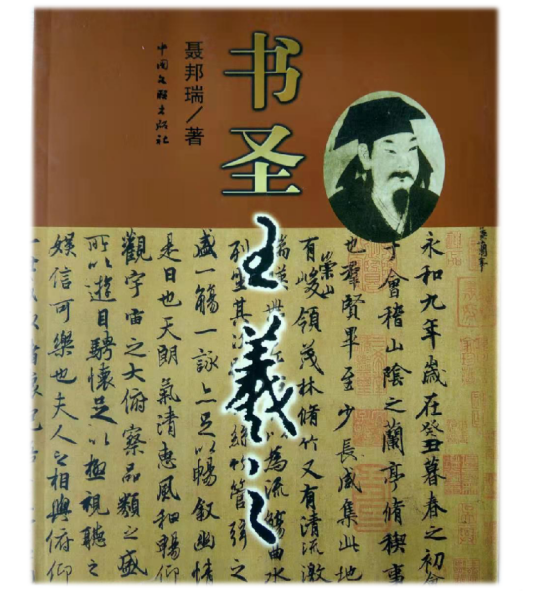 书圣
王羲之
聂邦瑞/著
中国文联出版社
永和九年歲在癸丑暮春之初會
于會稽山陰之蘭亭脩稧事
也羣賢畢至少長咸集此地
有崇山峻領茂林脩竹又有清流激
湍以為流觴曲水
列坐其絲竹管弦之
盛一觴一詠亦足以暢叙幽情
是日也天朗氣清惠風和暢仰
觀宇宙之大俯察品類之盛
所以遊目騁懷足以極視聽之
娛信可樂也夫人之相與俯仰